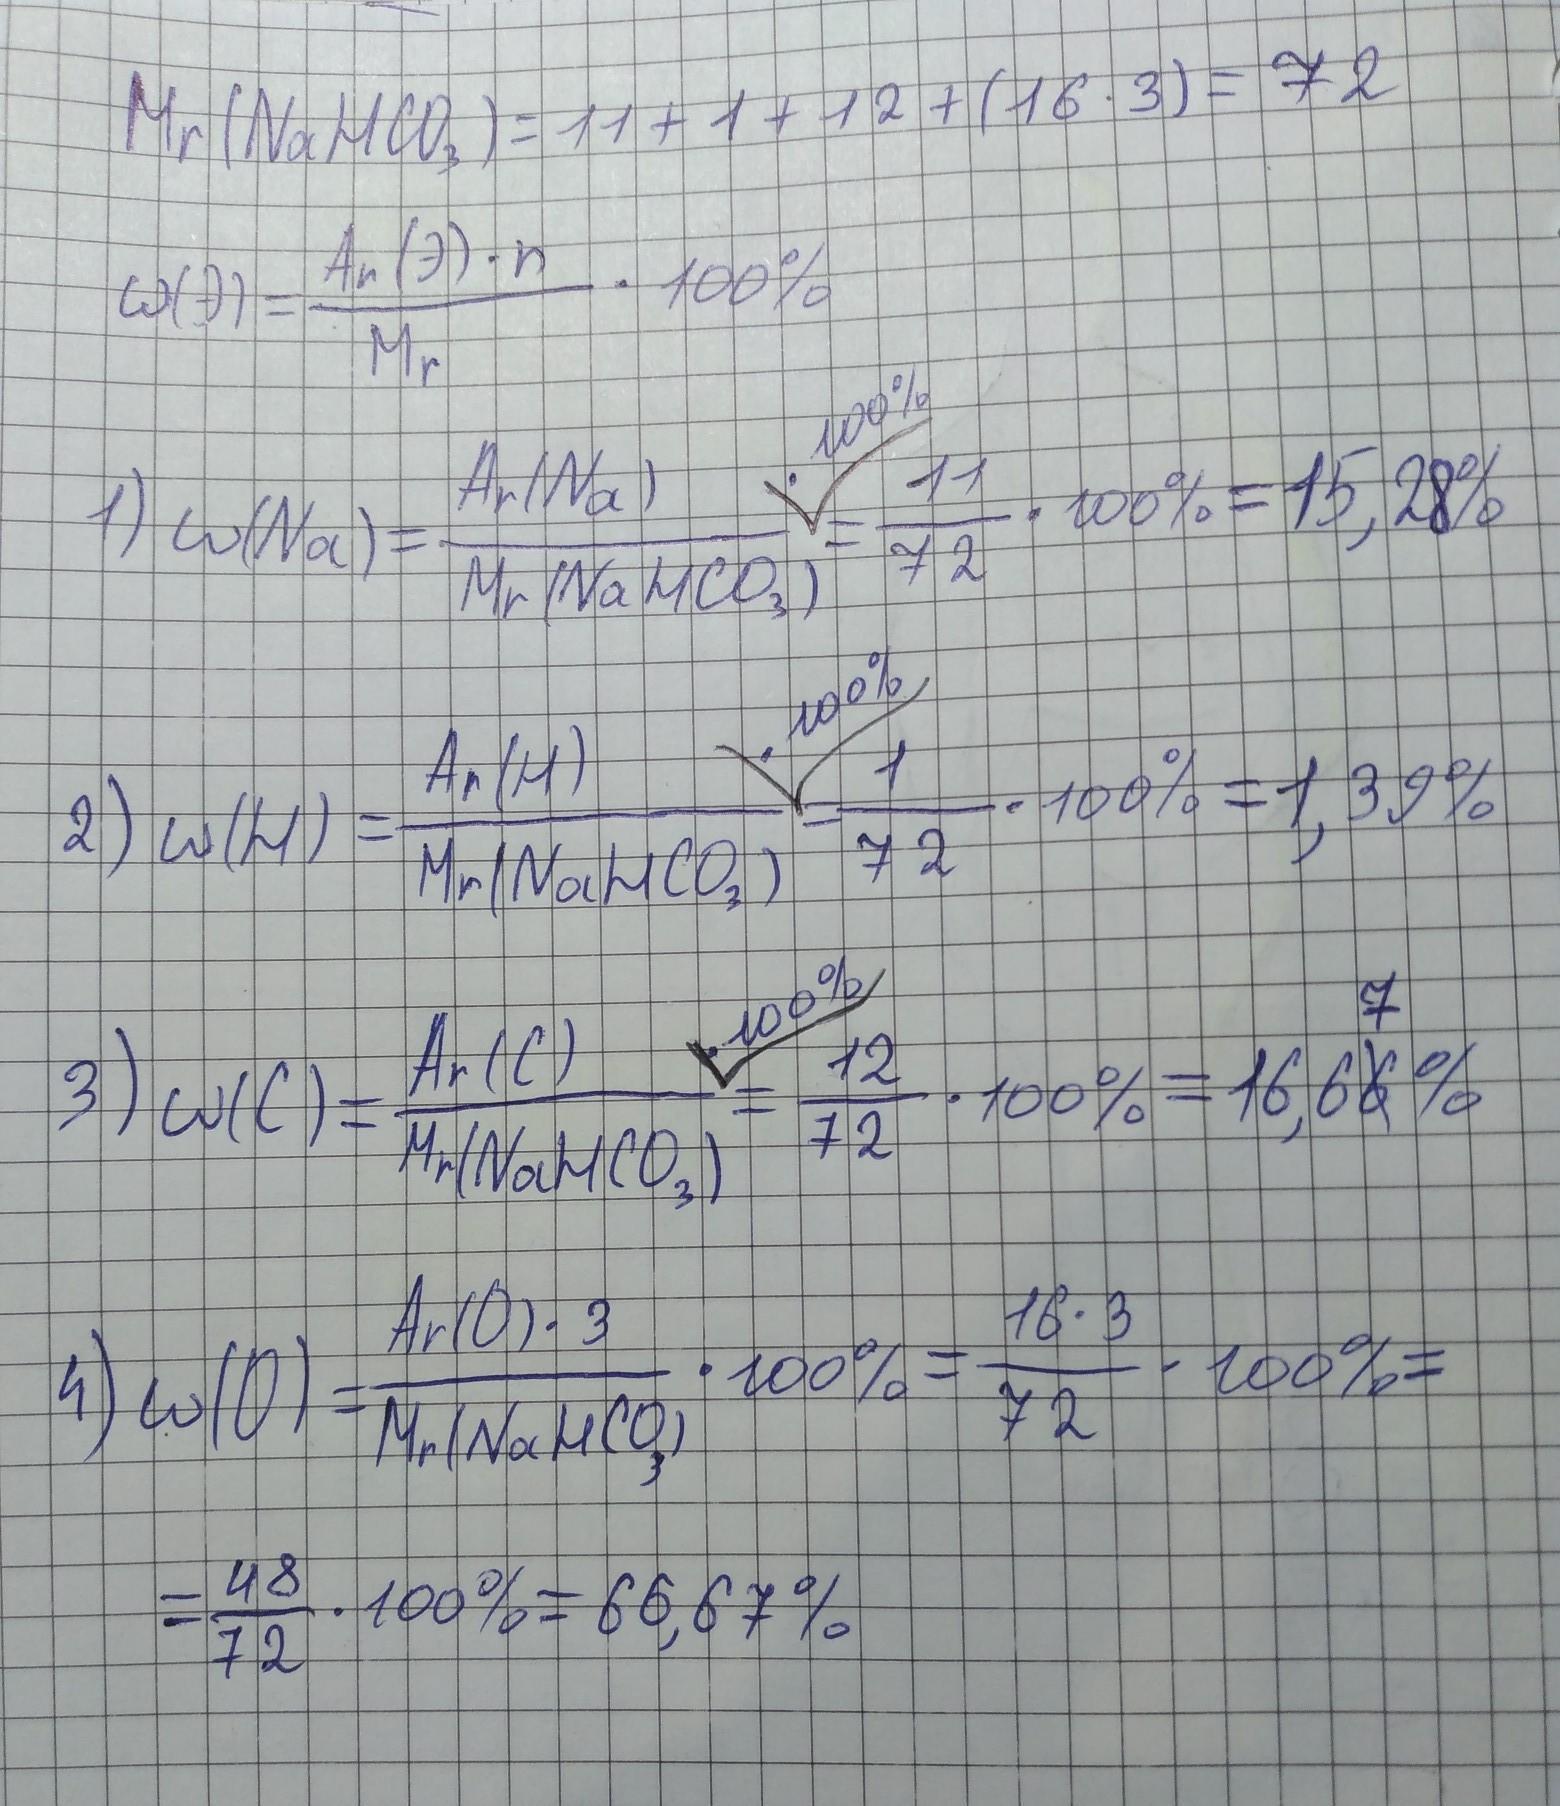 Mr(NaHCO₃) = 11 + 1 + 12 + (16 · 3) = 72
ω(Э) = Ar(Э) · n / Mr · 100%
1) ω(Na) = Ar(Na) / Mr(NaHCO₃) · 100% = 11 / 72 · 100% = 15,28%
2) ω(H) = Ar(H) / Mr(NaHCO₃) · 100% = 1 / 72 · 100% = 1,39%
3) ω(C) = Ar(C) / Mr(NaHCO₃) · 100% = 12 / 72 · 100% = 16,67%
4) ω(O) = Ar(O) · 3 / Mr(NaHCO₃) · 100% = 16 · 3 / 72 · 100% =
= 48 / 72 · 100% = 66,67%